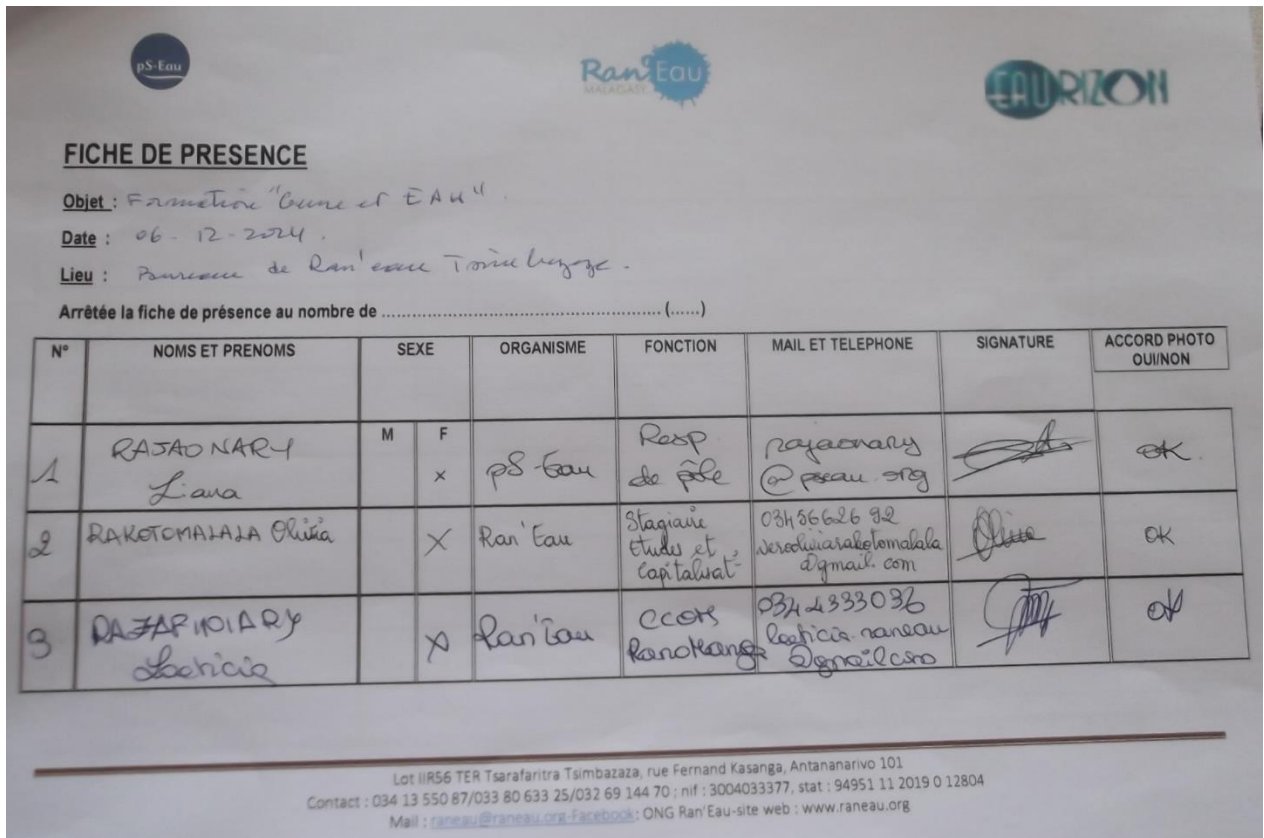 pS-Eau
Ran'Eau
MALAGASY
EAURIZON
FICHE DE PRESENCE
Objet : Formation "Genre et EAU".
Date : 06-12-2024.
Lieu : Bureau de Ran'eau Tsimbazaza.
Arrêtée la fiche de présence au nombre de .................................................... (......)
N° NOMS ET PRENOMS SEXE ORGANISME FONCTION MAIL ET TELEPHONE SIGNATURE ACCORD PHOTO
OUI/NON
M F
1 RAJAONARY Liana x pS-Eau Resp de pôle rajaonary @pseau.org OK.
2 RAKOTOMALALA Olivia X Ran'Eau Stagiaire Etudes et Capitalisat° 0345662692 verooliviarakotomalala @gmail.com OK
3 Laeticia X Ran'Eau 0344333036 laeticia.raneau @gmail.com OK
Lot IIR56 TER Tsarafaritra Tsimbazaza, rue Fernand Kasanga, Antananarivo 101
Contact : 034 13 550 87/033 80 633 25/032 69 144 70 ; nif : 3004033377, stat : 94951 11 2019 0 12804
Mail : raneau@raneau.org-Facebook: ONG Ran'Eau-site web : www.raneau.org